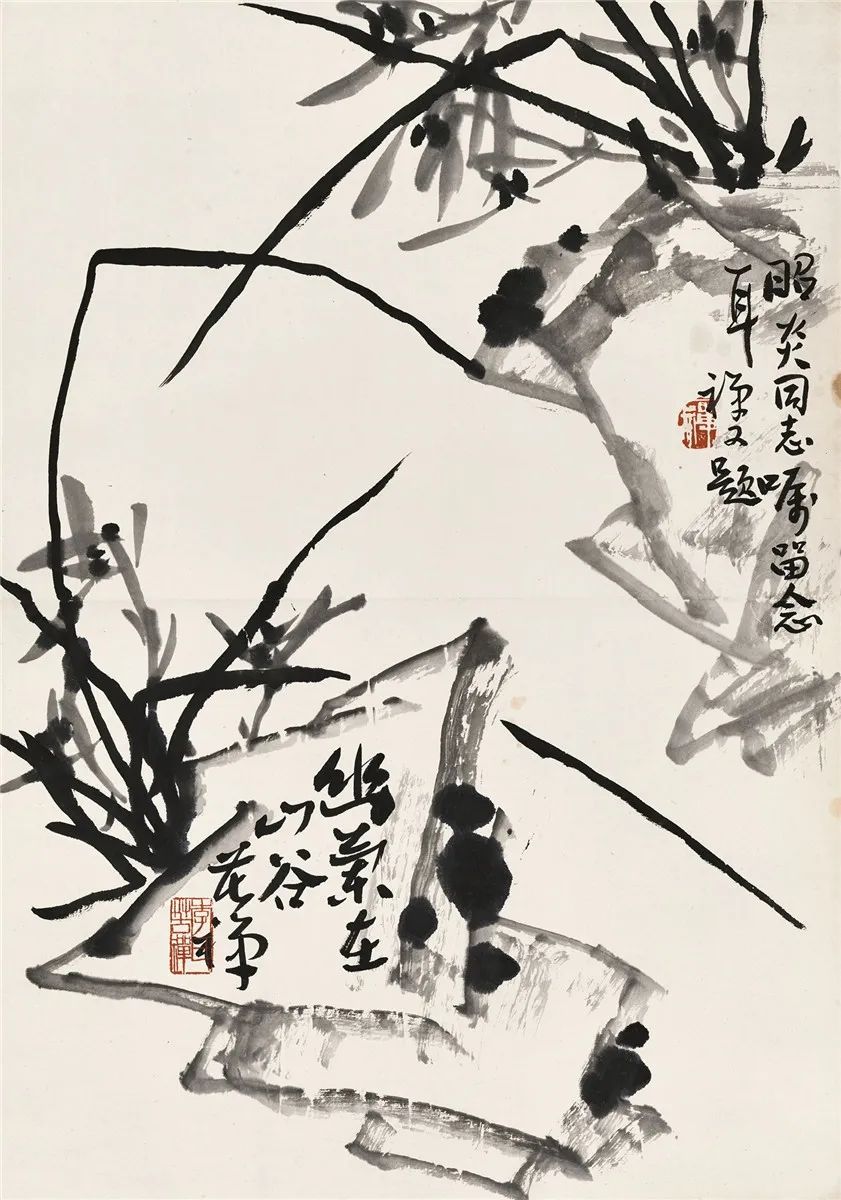 昭炎同志嘱留念
禅又题
幽蘭在
山谷
苦禅